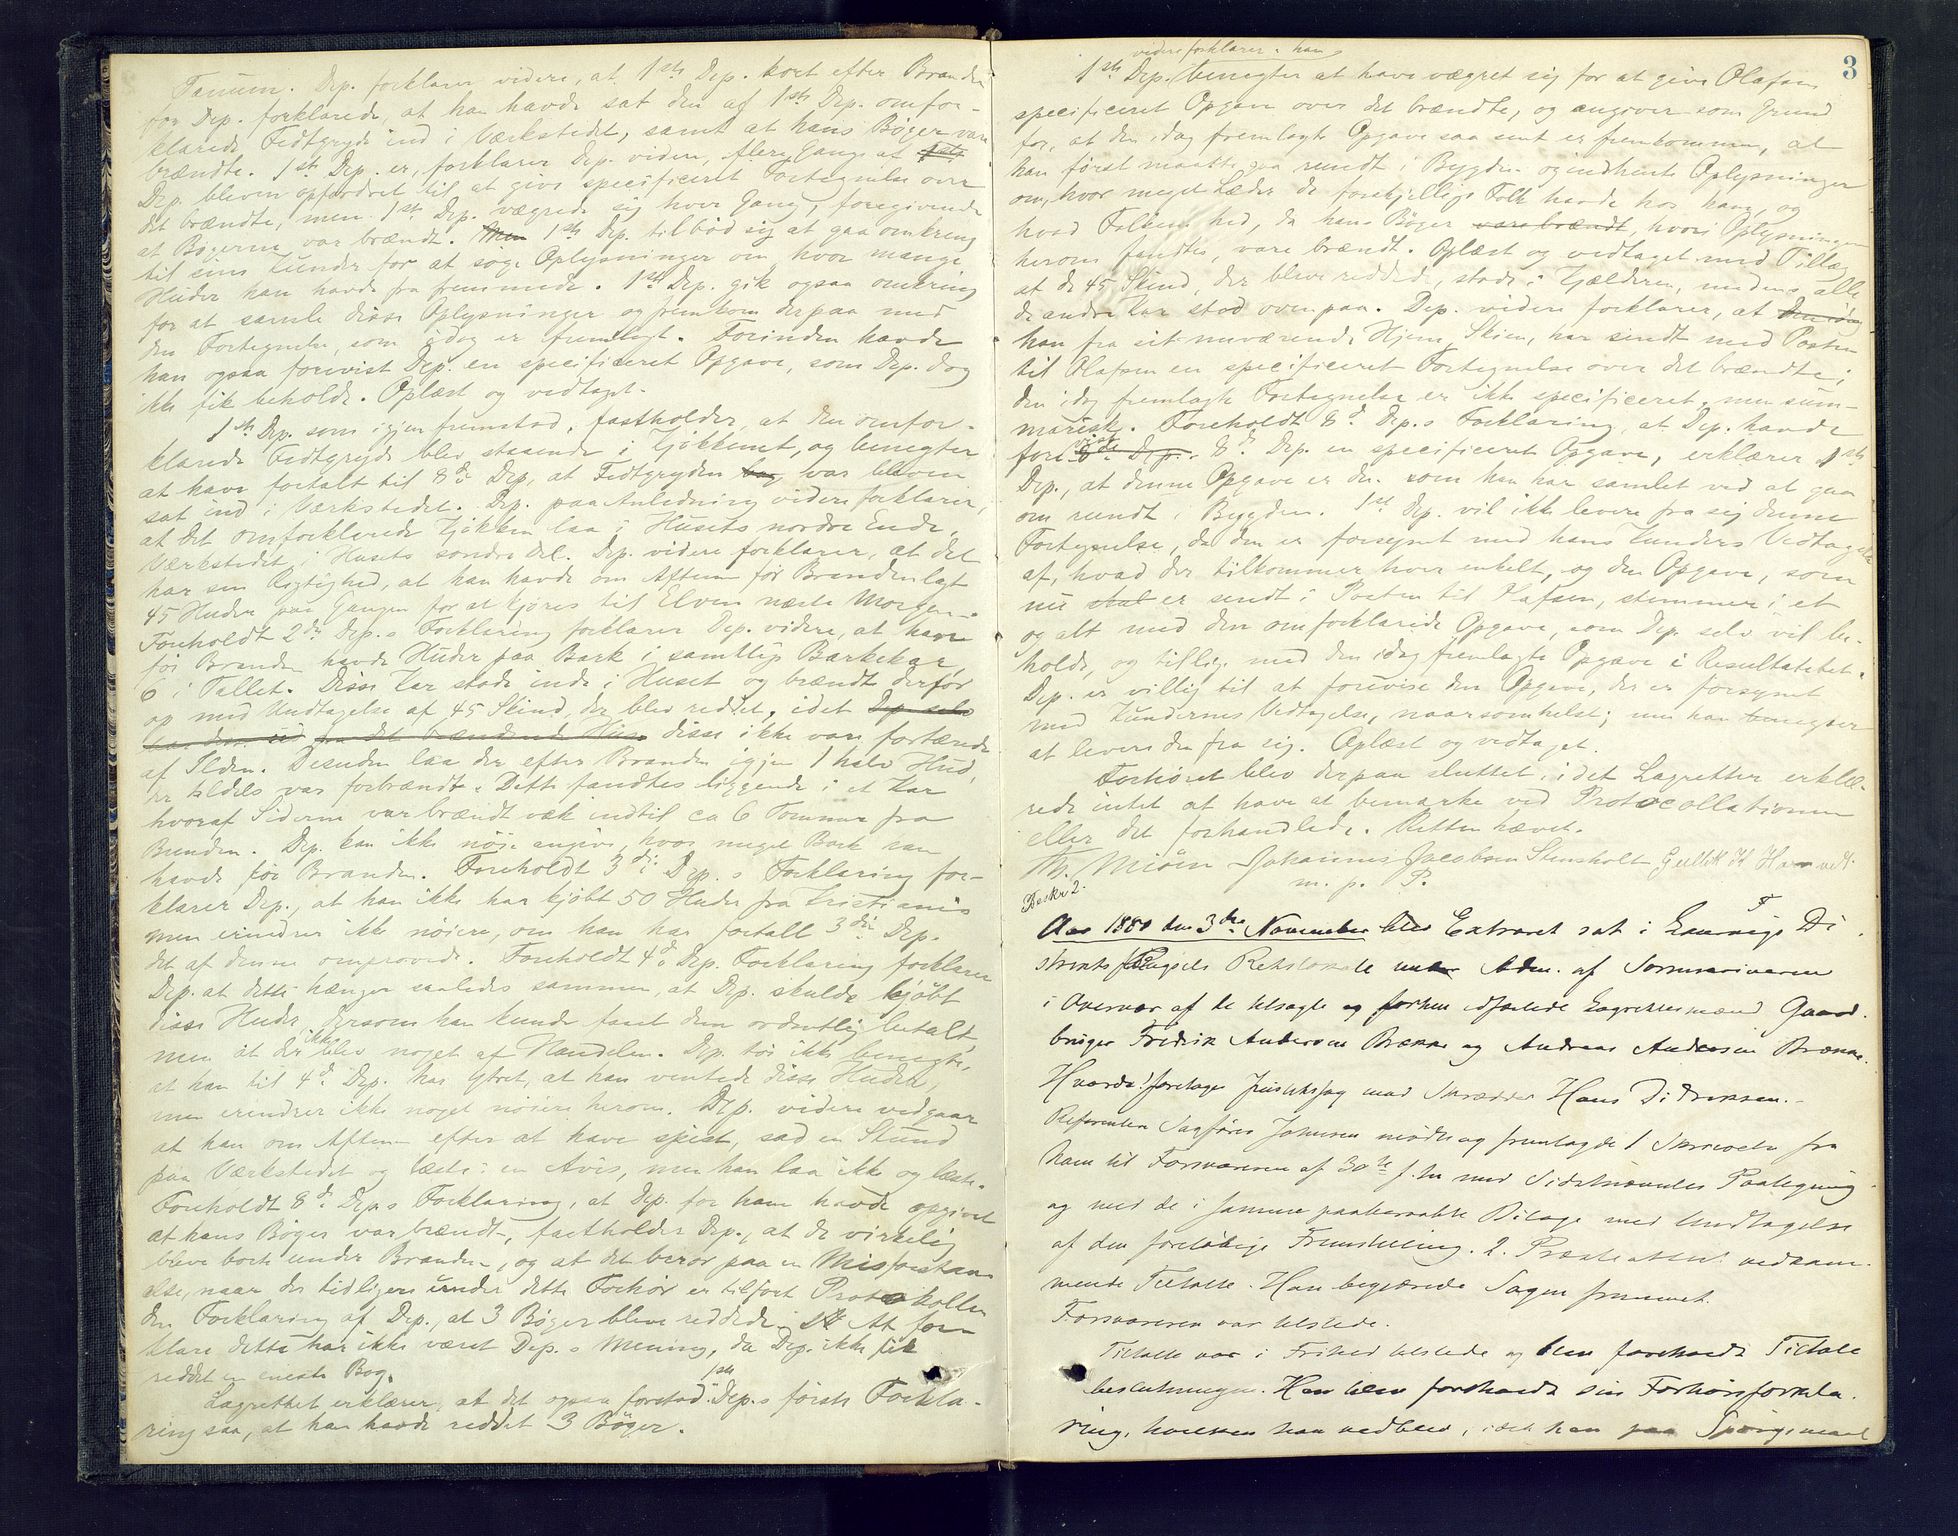 Tanum. Dep. forklarer videre, at 1ste Dep. kort efter Branden
for Dep. forklarede, at han havde sat den af 1ste Dep. omfor-
klarede Fedtgryde ind i Værkstedet, samt at hans Bøger vare
brændte. 1ste Dep. er, forklarer Dep. videre, flere Gange af
Dep. bleven opfordret til at give specificeret Fortegnelse over
det brændte, men 1ste Dep. vægrede sig hver Gang, foregivende
at Bøgerne var brændt. Men 1ste Dep. tilbød sig at gaa omkring
til sine Kunder for at søge Oplysninger om, hvor mange
Huder han havde fra fremmede. 1ste Dep. gik ogsaa omkring
for at samle disse Oplysninger og fremkom derpaa med
den Fortegnelse, som idag er fremlagt. Forinden havde
han ogsaa forevist Dep. en specificeret Opgave, som Dep. dog
ikke fik beholde. Oplæst og vedtaget.
1ste Dep. som igjen fremstod, fastholder, at den omfor-
klarede Fedtgryde blev staaende i Kjøkkenet, og benegter
at have fortalt til 8de Dep, at Fedtgryden var var bleven
sat ind i Værkstedet. Dep. paa Anledning videre forklarer,
at det omforklarede Kjøkken laa i Husets nordre Ende,
Værkstedet i Husets søndre Del. Dep. videre forklarer, at det
har sin Rigtighed, at han havde om Aftenen før Branden lagt
45 Huder paa Gangen for at kjøres til Elven næste Morgen.
Foreholdt 2den Dep.s Forklaring forklarer Dep. videre, at han
før Branden havde Huder paa Bark i samtlige Barkekar,
6 i Tallet. Disse Kar stode inde i Huset og brændte derfor
op med Undtagelse af 45 Skind, der blev reddet, idet Dep selv
bar dem ud fra det brændende Hus disse ikke vare fortærede
af Ilden. Desuden laa der efter Branden igjen 1 halv Hud,
der tildels var forbrændt. Dette fandtes liggende i et Kar
hvoraf Siderne var brændt væk indtil ca 6 Tommer fra
Bunden. Dep. kan ikke nøie angive, hvor meget Bark han
havde før Branden. Foreholdt 3die Dep.s Forklaring for-
klarer Dep., at han ikke har kjøbt 50 Huder fra Kristiania
men erindrer ikke nøiere, om han har fortalt 3die Dep.
det af denne omprovede. Foreholdt 4de Dep. Forklaring forklarer
Dep. at dette hænger saaledes sammen, at Dep. skulde kjøbt
disse Huder, dersom han kunde faaet dem ordentlig betalt,
men at der ikke blev noget af Handelen. Dep. tør ikke benegte,
at han til 4de Dep. har ytret, at han ventede disse Huder,
men erindrer ikke noget nøiere herom. Dep. videre vedgaar
at han om Aftenen efter at have spist, sad en Stund
paa Værkstedet og læste i en Avis, men han laa ikke og læste.
Foreholdt 8de Deps Forklaring, at Dep. for ham havde opgivet
at hans Bøger var brændt, fastholder Dep., at de virkelig
bleve borte under Branden, og at det beror paa en Misforstaa-
else, naar der tidligere under dette Forhør er tilført Protokollen
den Forklaring af Dep., at 3 Bøger bleve reddede. At for-
klare dette har ikke været Dep.s Mening, da Dep. ikke fik
reddet en eneste Bog.
Lagrettet erklærer, at det ogsaa forstod 1ste Dep.s første Forkla-
ring saa, at han havde reddet 3 Bøger.
3
videre forklarer. han
1ste Dep. benegter at have vægret sig for at give Olafsen
specificeret Opgave over det brændte, og angiver som Grund
for, at den idag fremlagte Opgave saa sent er fremkommen, at
han først maatte gaa rundt i Bygden og indhente Oplysninger
om, hvor meget Læder de forskjellige Folk havde hos ham, og
hvad Folkene hed, da hans Bøger vare brændt, hvori Oplysninger
herom fandtes, vare brændt. Oplæst og vedtaget med Tillæg
at de 45 Skind, der bleve reddede, stode i Kjælderen, medens alle
de andre Kar stod ovenpaa. Dep. videre forklarer, at
han fra sit nuværende Hjem, Skien, har sendt med Posten
til Olafsen en specificeret Fortegnelse over det brændte;
den idag fremlagte Fortegnelse er ikke specificeret, men sum-
marisk. Foreholdt 8de Dep.s Forklaring, at Dep. havde
forevist 8de Dep. 8de Dep. en specificeret Opgave, erklærer 1ste
Dep., at denne Opgave er den som han har samlet ved at gaa
om rundt i Bygden. 1ste Dep. vil ikke levere fra sig denne
Fortegnelse, da den er forsynet med hans Kunders Vedtagelse
af, hvad der tilkommer hver enkelt, og den Opgave, som
nu skal er sendt i Posten til Olafsen, stemmer i et
og alt med den omforklarede Opgave, som Dep. selv vil be-
holde, og tillige med den idag fremlagte Opgave i Resultatet.
Dep. er villig til at forevise den Opgave, der er forsynet
med Kundernes Vedtagelse, naarsomhelst; men han benegter
at levere den fra sig. Oplæst og vedtaget.
Forhøret blev derpaa sluttet, idet Lagrettet erklæ-
rede intet at have at bemærke ved Protocollationen
eller det forhandlede. Retten hævet.
Th. Miøen Johannes Jacobsen Stensholt Gullik
m. p. P.
Beskr 2.
Aar 1880 den 3die November blev Extraret sat i Laurvigs Di
strikts Fængsels Retslokale under Adm. af Sorenskriveren
i Overvær af de tilsagte og forhen edfæstede Lagrettesmænd Gaard
bruger Fredrik Andersen Brekke og Andreas Andersen Brække.
Hvorda! foretages Justitssag mod Skrædder Hans Didriksen.
Referenten Sagfører Johnsen mødte og fremlagde 1 Skrivelse fra
ham til Forsvareren af 30te f. M med Sidstnævntes Paategning
og med de i samme paaberaabte Bilage med Undtagelse
af den foreløbige Fremstilling. 2. Præsteattest vedkom-
mende Tiltalte. Han begjærede Sagen fremmet.
Forsvareren var tilstede.
Tiltalte var i Frihed tilstede og blev foreholdt Tiltale
beslutningen. Han blev foreholdt sin Forhørsforkla.
ring, hvilken han vedblev, idet han paa Spørgsmaal